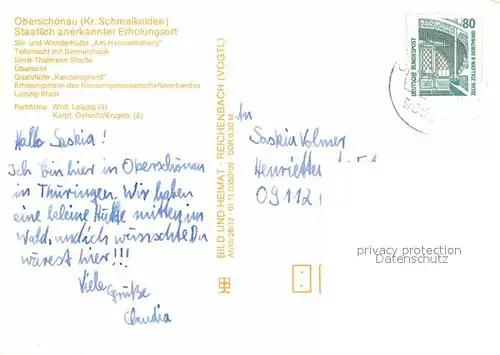 Oberschönau (Kr. Schmalkalden)
Staatlich anerkannter Erholungsort
Ski- und Wanderhütte "Am Hermannsberg"
Teilansicht mit Donnershauk
Ernst-Thälmann-Straße
Übersicht
Gaststätte „Kanzlersgrund“
Erholungsheim des Konsumgenossenschaftsverbandes
Leipzig-Stadt
Farbfotos: Wolf, Leipzig (4)
Karpf, Oelsnitz/Erzgeb. (2)
Hallo Saskia!
Ich bin hier in Oberschönau
in Thüringen. Wir haben
eine kleine Hütte mitten im
Wald, und ich wünschte Du
wärest hier!!!
Viele
Grüße
Claudia
BILD UND HEIMAT · REICHENBACH (VOGTL)
DDR 0,20 M
An
Saskia Volmer
Henrietten
09112
80
DEUTSCHE BUNDESPOST
ZECHE ZOLLERN II DORTMUND
privacy protection
Datenschutz AK